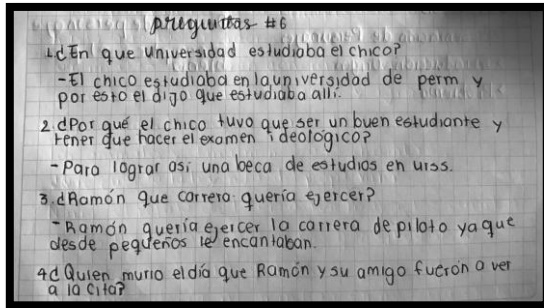 preguntas #6
1.¿En que universidad estudiaba el chico?
-El chico estudiaba en la universidad de perm y
por esto el dijo que estudiaba allí.
2.¿Por qué el chico tuvo que ser un buen estudiante y
tener que hacer el examen ideológico?
-Para lograr asi una beca de estudios en urss.
3.¿Ramón que carrera quería ejercer?
-Ramón quería ejercer la carrera de piloto ya que
desde pequeños le encantaban.
4¿Quien murio el día que Ramón y su amigo fuerón a ver
a la cita?